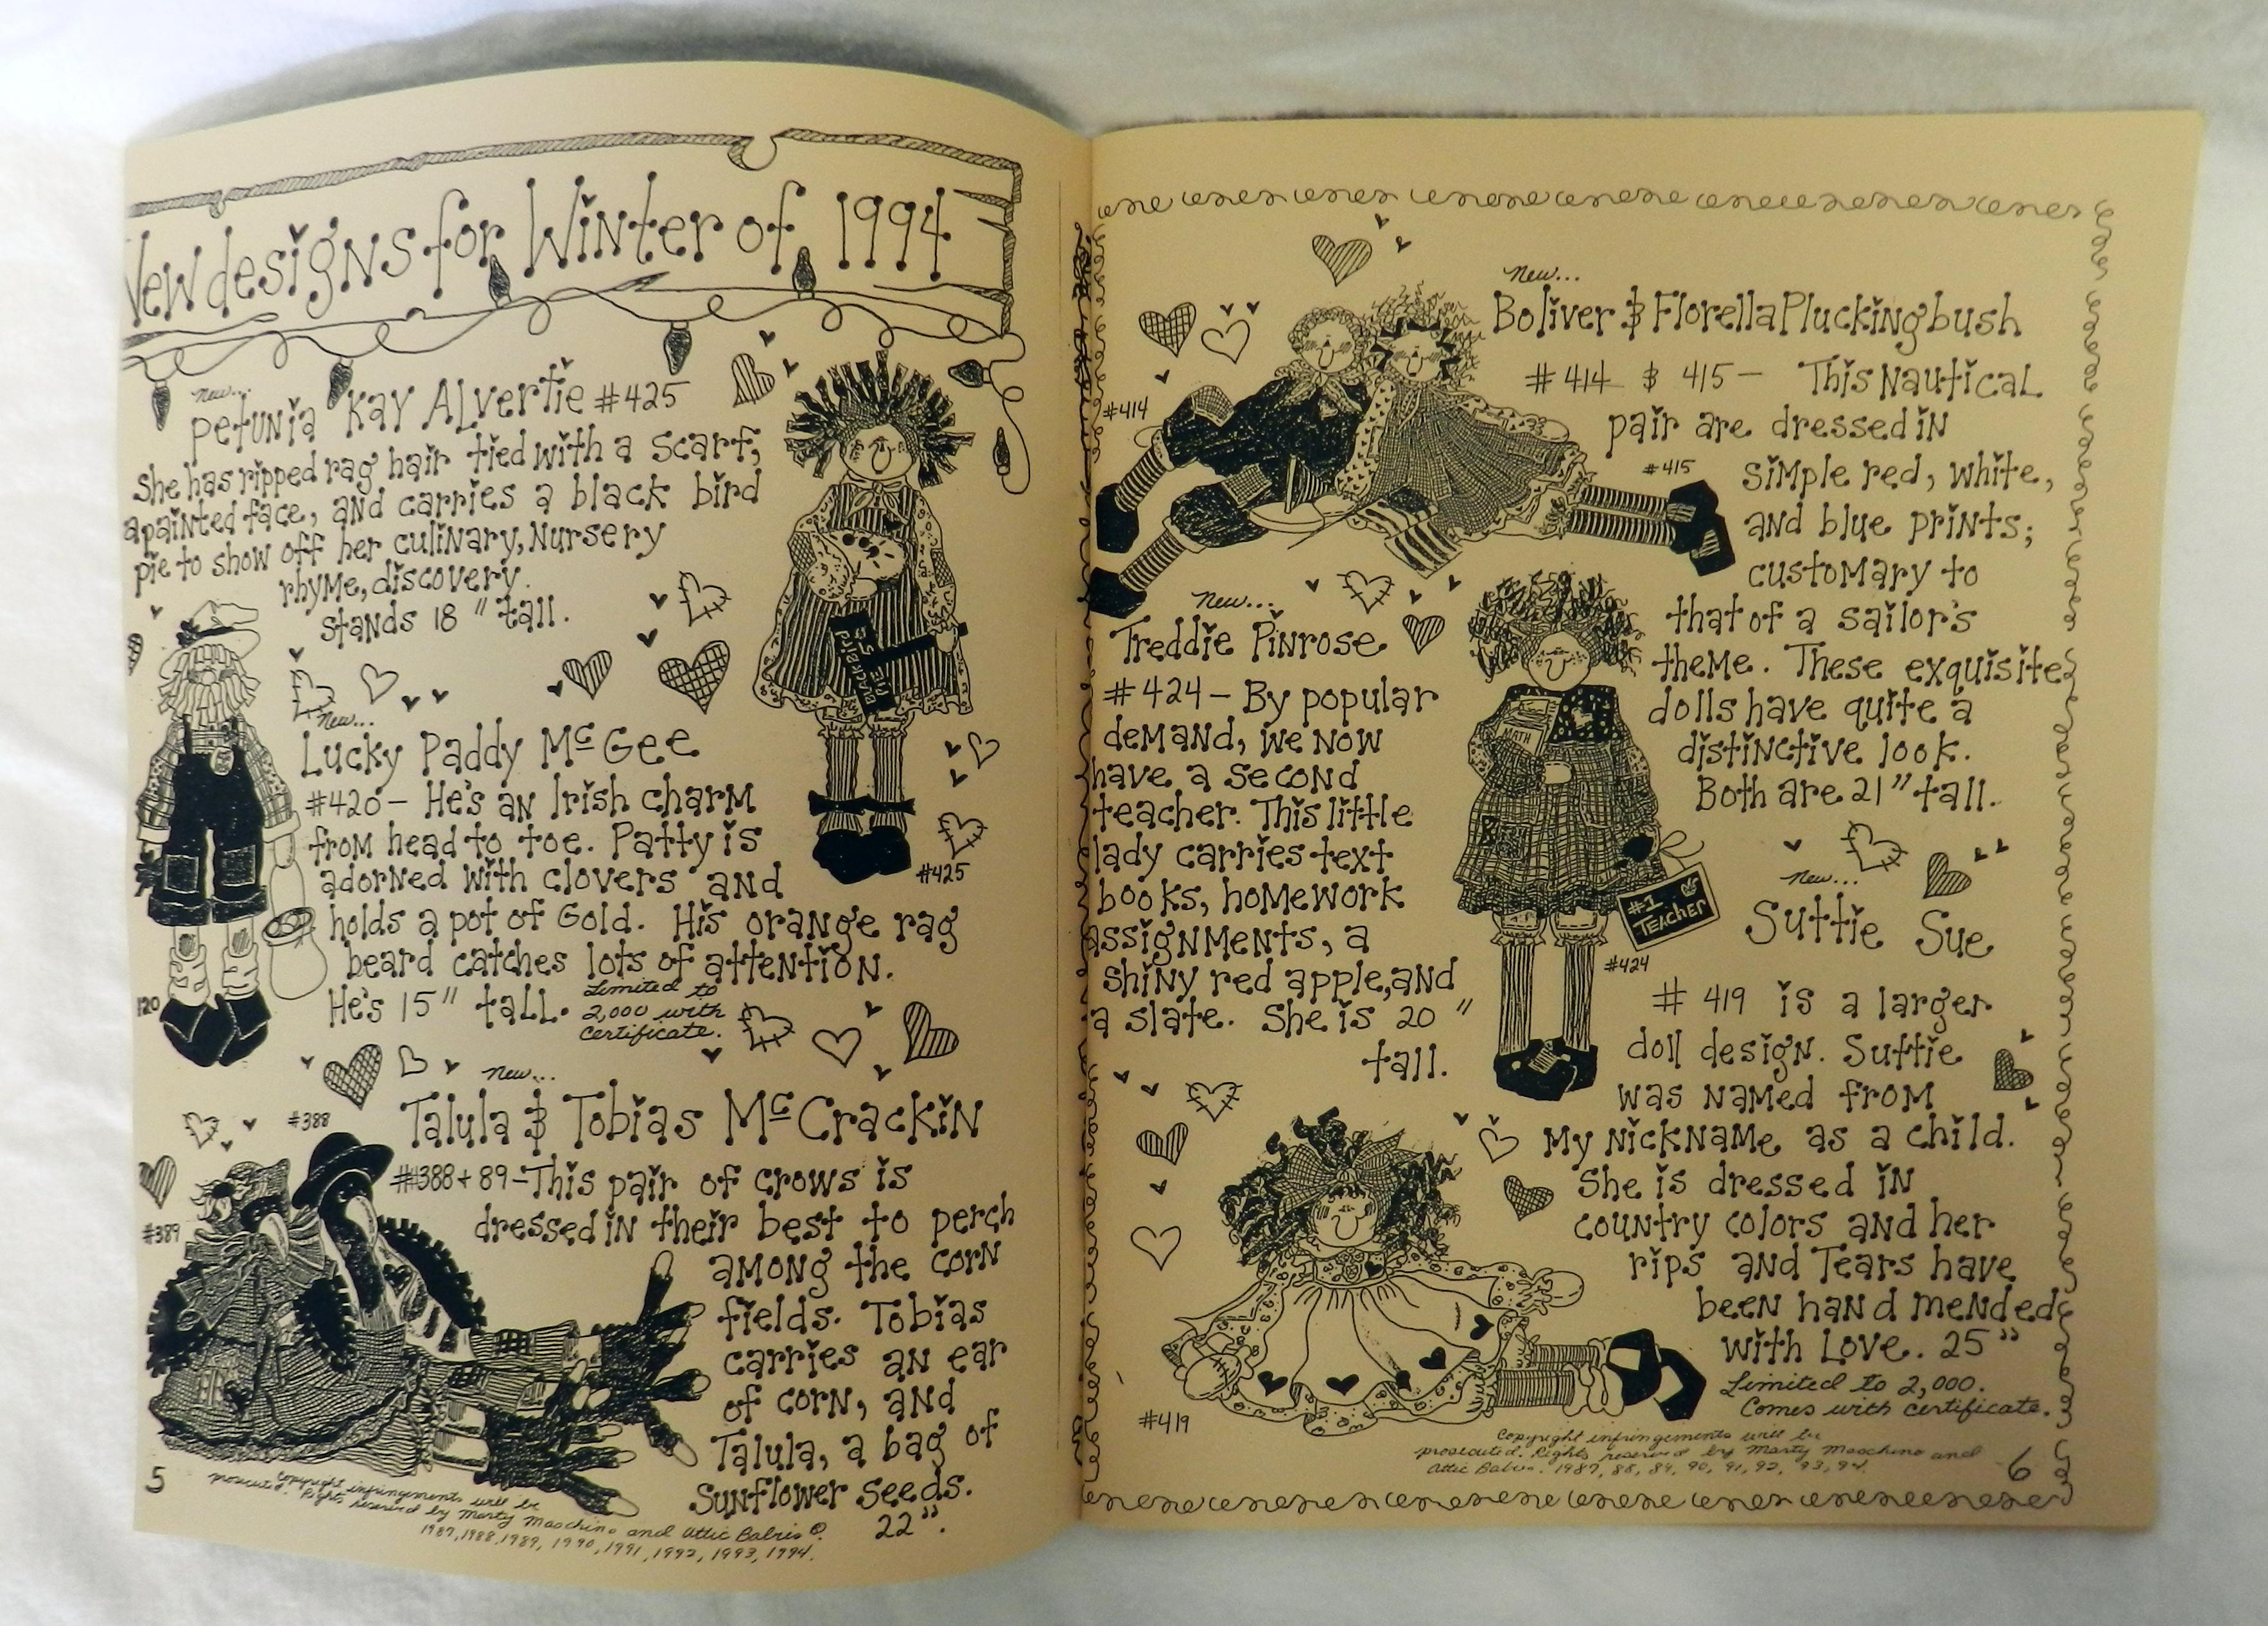 New designs for Winter of 1994
new...
Petunia Kay Alvertie #425
She has ripped rag hair tied with a scarf,
a painted face, and carries a black bird
pie to show off her culinary, Nursery
rhyme, discovery.
stands 18" tall.
#425
new...
Lucky Paddy McGee
#420 - He's an Irish charm
from head to toe. Patty is
adorned with clovers and
holds a pot of Gold. His orange rag
beard catches lots of attention.
He's 15" tall. Limited to
2,000 with
certificate.
120
new...
Talula & Tobias McCrackin
#388
#389
#388 + 89 - This pair of crows is
dressed in their best to perch
among the corn
fields. Tobias
carries an ear
of corn, and
Talula, a bag of
Sunflower seeds.
22".
5
Copyright infringements will be
prosecuted. Rights reserved by Marty Maschino and Attic Babies ©.
1987, 1988, 1989, 1990, 1991, 1992, 1993, 1994.
new...
Boliver & Florella Pluckingbush
#414 & 415 - This Nautical
pair are dressed in
simple red, white,
and blue prints;
customary to
that of a sailor's
theme. These exquisite
dolls have quite a
distinctive look.
Both are 21" tall.
#414
#415
new...
Treddie Pinrose
#424 - By popular
demand, we now
have a second
teacher. This little
lady carries text
books, homework
assignments, a
shiny red apple, and
a slate. She is 20"
tall.
MATH
#1
Teacher
#424
new...
Suttie Sue
#419 is a larger
doll design. Suttie
was named from
My nickname as a child.
She is dressed in
country colors and her
rips and Tears have
been hand mended
with Love. 25"
Limited to 2,000.
Comes with certificate.
#419
Copyright infringements will be
prosecuted. Rights reserved by Marty Maschino and
Attic Babies. 1987, 88, 89, 90, 91, 92, 93, 94.
6